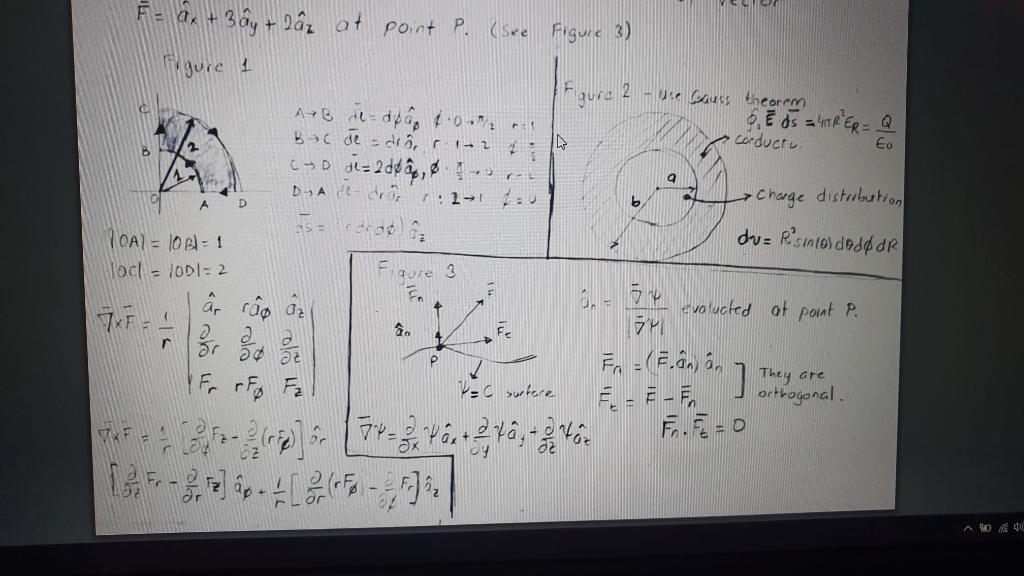 F̄ = âx + 3ây + 2âz at point P. (See Figure 3)
Figure 1
C
B
O
A
D
1
2
A→B d̄l = dφâφ φ:0→π/2 r=1
B→C d̄l = drâr r:1→2 φ=π/2
C→D d̄l = 2dφâφ, φ:π/2→0 r=2
D→A d̄l = drâr r:2→1 φ=0
d̄s = (rdrdφ)âz
|OA| = |OB| = 1
|OC| = |OD| = 2
∇̄×F̄ = 1/r | âr râφ âz |
| ∂/∂r ∂/∂φ ∂/∂z |
| Fr rFφ Fz |
∇̄×F̄ = 1/r [∂/∂φ Fz - ∂/∂z (rFφ)] âr
[∂/∂z Fr - ∂/∂r Fz] âφ + 1/r [∂/∂r (rFφ) - ∂/∂φ Fr] âz
Figure 2 - use Gauss theorem
∮s Ē d̄s = 4πR²ER = Q/ε0
a
b
Charge distribution
dv = R²sin(θ)dθdφdR
Figure 3
F̄n
F̄
ân
F̄t
P
Ψ=C surface
ân = ∇̄Ψ/|∇̄Ψ| evaluated at point P.
F̄n = (F̄.ân) ân
F̄t = F̄ - F̄n
They are
orthogonal.
F̄n.F̄t = 0
∇̄Ψ = ∂/∂x Ψâx + ∂/∂y Ψây + ∂/∂z Ψâz